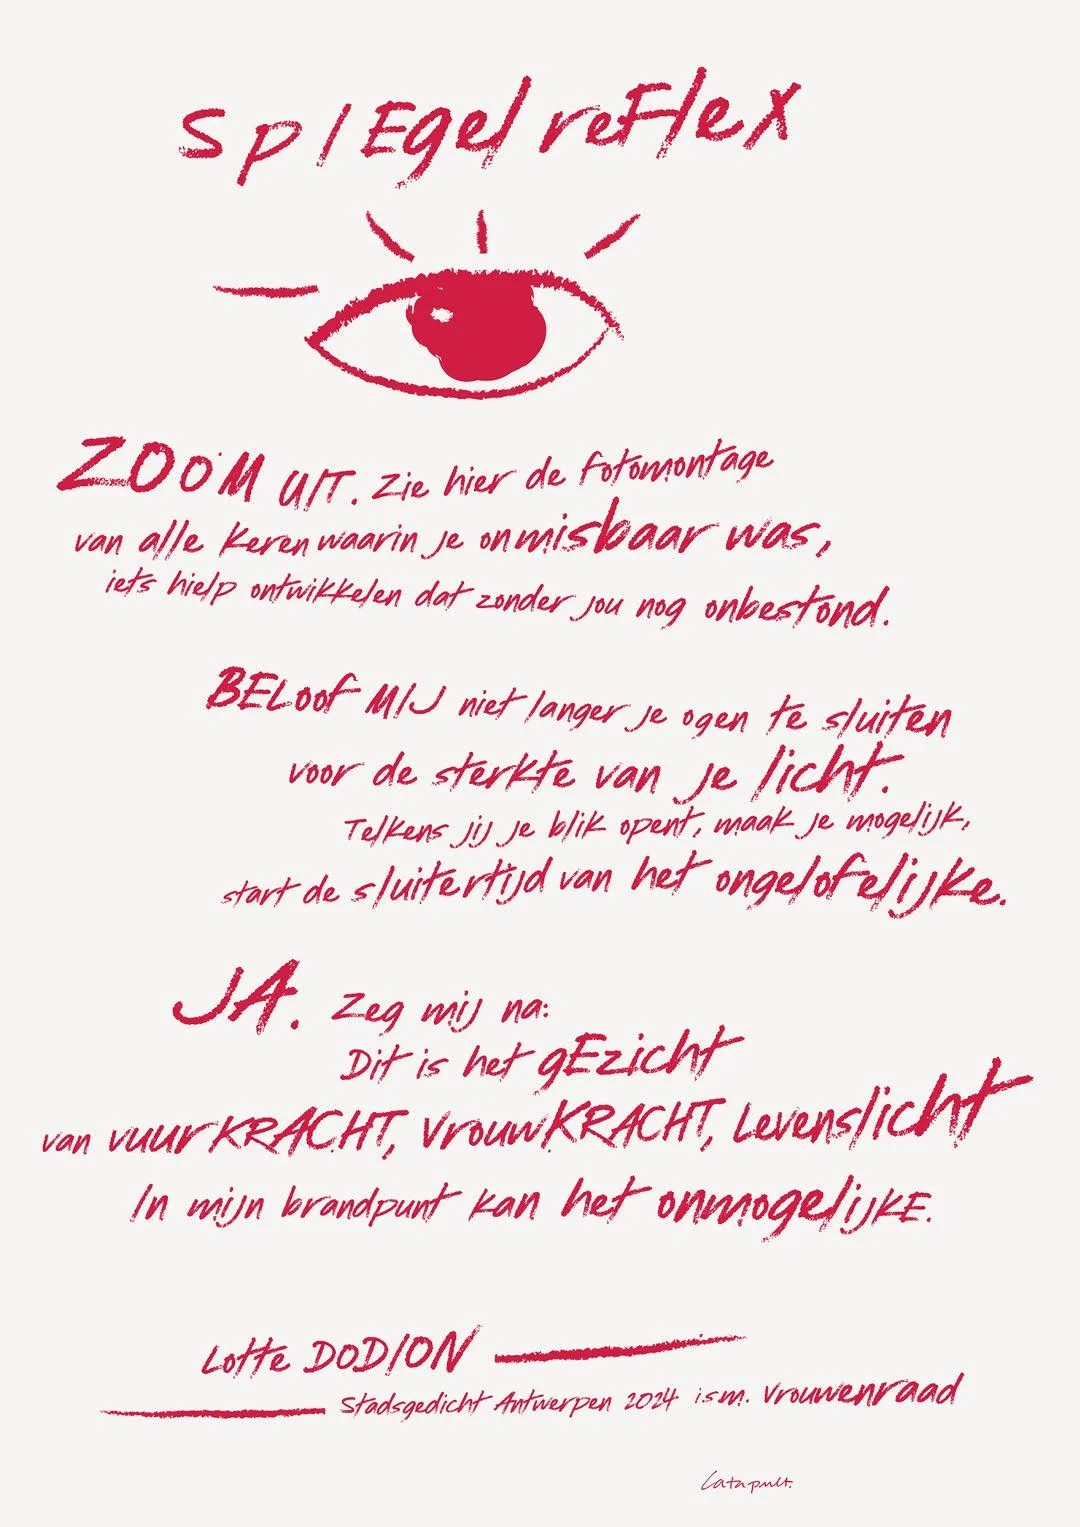 SpIEgel reFlex
ZOOM UIT. Zie hier de fotomontage
van alle keren waarin je onmisbaar was,
iets hielp ontwikkelen dat zonder jou nog onbestond.
BELoof MIJ niet langer je ogen te sluiten
voor de sterkte van je licht.
Telkens jij je blik opent, maak je mogelijk,
start de sluitertijd van het ongelofelijke.
JA. Zeg mij na:
Dit is het gEzicht
van vuurKRACHT, VrouwKRACHT, Levenslicht
In mijn brandpunt kan het onmogelijKE.
Lotte DODION
Stadsgedicht Antwerpen 2024 i.s.m. Vrouwenraad
Catapult.